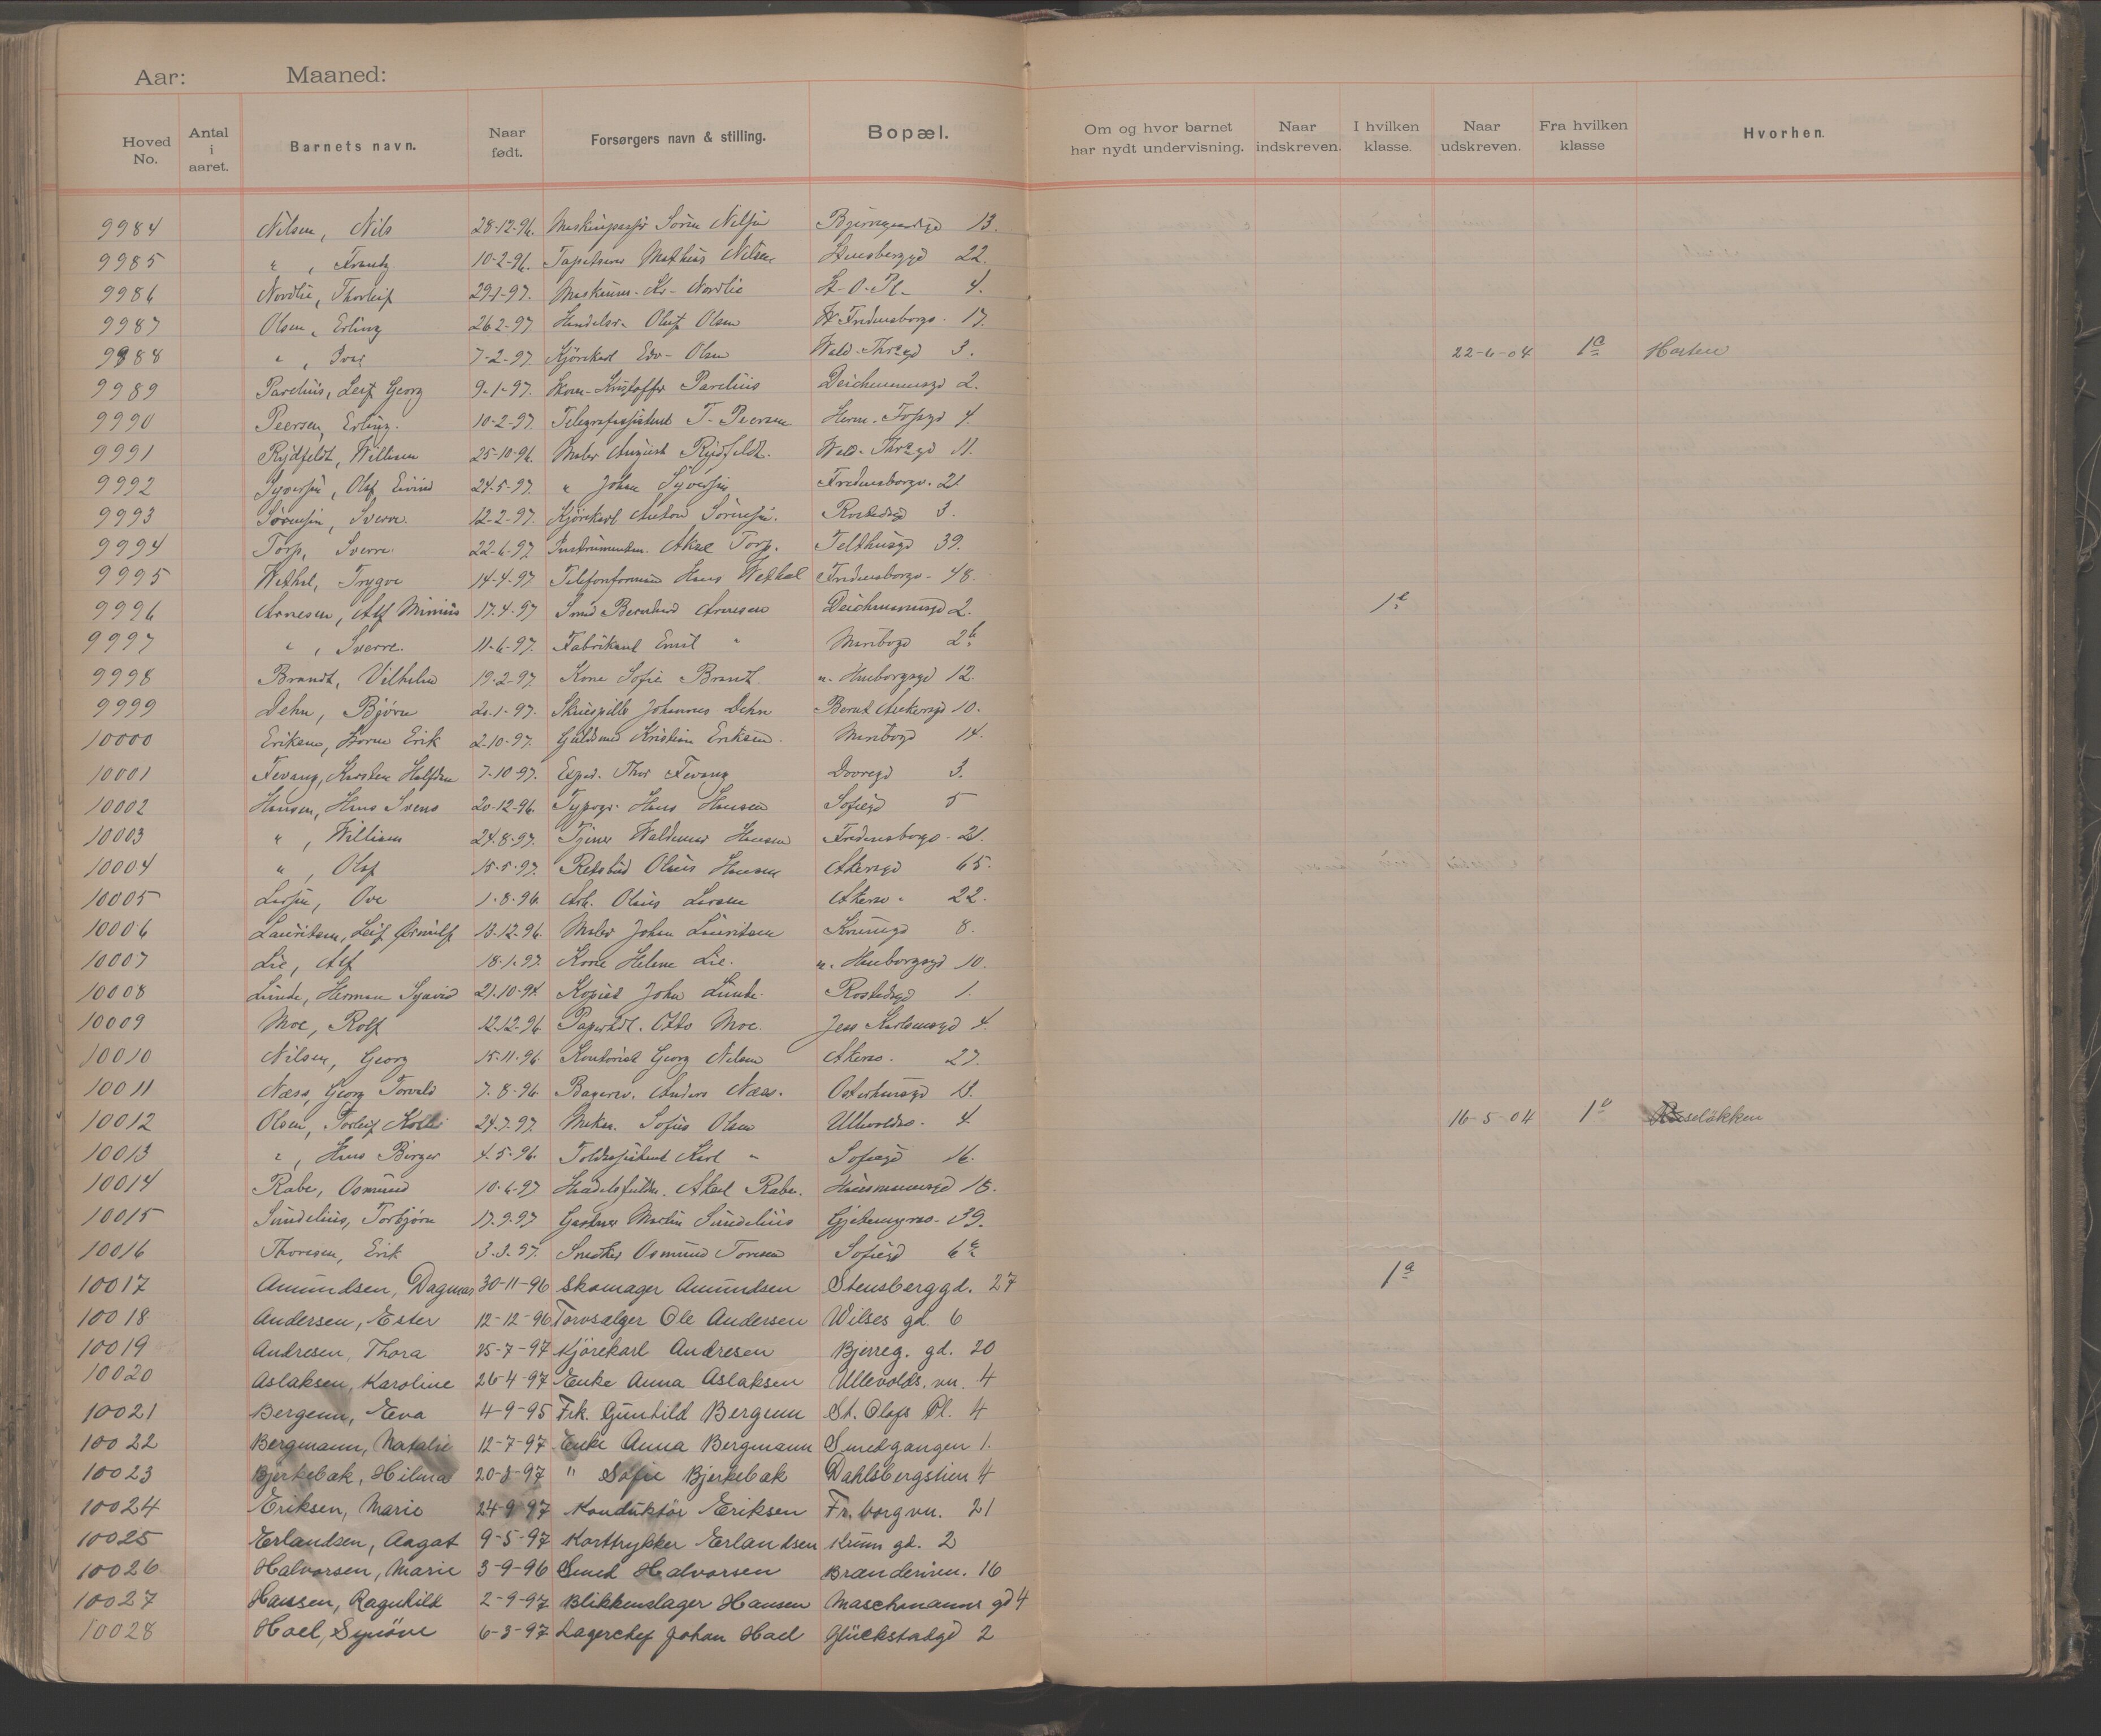 Aar: Maaned:
Hoved No. Antal i aaret. Barnets navn. Naar født. Forsørgers navn & stilling. Bopæl. Om og hvor barnet har nydt undervisning. Naar indskreven. I hvilken klasse. Naar udskreven. Fra hvilken klasse Hvorhen.
9984 Nilsen, Nils 28-12-96. Søren Nilsen 13.
9985 " , Frantz 10-2-96. Mathias Nilsen Stensberggd 22.
9986 Nordlie, Thorleif 29-1-97. Nordlie St. O. Pl. 4.
9987 Olsen, Erling 26-2-97 Oluf Olsen Fredensborgv. 17.
9988 " , Ivar 7-2-97. Kjørekarl Edv. Olsen Wald. Thrsgd 3. 22-6-04 Horten
9989 Parelius, Leif Georg 9-1-97. Kristoffer Parelius Deichmannsgd 2.
9990 Peersen, Erling. 10-2-97. Telegrafassistent T. Peersen Herm. Fossgd 4.
9991 Rydfeldt, William 25-10-96. Maler August Rydfeldt. Wald. Thrsgd 11.
9992 Syversen, Olaf Eivind 24-5-97. " Johan Syversen Fredensborgv. 21
9993 Sørensen, Sverre. 12-2-97. Kjørekarl Anton Sørensen. Rostedsgd 3.
9994 Torp, Sverre. 22-6-97 Instrumentm. Aksel Torp. Telthusgd 39.
9995 Wethal, Trygve 14-4-97 Telefonformand Hans Wethal Fredensborgv. 48.
9996 Arnesen, Alf Minius 17-4-97 Smed Bernhard Arnesen Deichmannsgd 2. 1e
9997 " , Sverre. 11-6-97. Fabrikant Emil " Maribogd 2b
9998 Brandt, Vilhelm 19-2-97 Kone Sofie Brandt. 12.
9999 Dehn, Bjørn 20-1-97. Skuespiller Johannes Dehn Bernt Ankersgd 10.
10000 Eriksen, Erik 2-10-97. Guldsmed Kristian Eriksen. Maribogd 14.
10001 Fevang, Karsten Halfdan 7-10-97. Exped. Thor Fevang Dovregd 3.
10002 Hansen, Hans Svens 20-12-96. Typogr. Hans Hansen Sofiegd 5
10003 " , William 24-8-97. Tjener Waldemar Hansen Fredensborgv. 21.
10004 " , Olaf 15-5-97. Retsbud Olaus Hansen Akersgd 65.
10005 Larsen, Ove 1-8-96. Arb. Olaus Larsen Akersv. 22.
10006 Lauritsen, Leif Ørnulf 13-12-96. Maler Johan Lauritsen Krumgd 8.
10007 Lie, Alf 18-1-97. Kone Helene Lie. 10.
10008 Lunde, Herman Sigurd 21-10-94. Kopist John Lunde. Rostedsgd 1.
10009 Moe, Rolf 12-12-96. Papirhdl. Otto Moe. 4.
10010 Nilsen, Georg 15-11-96. Kontorist Georg Nilsen Akersv. 27.
10011 Næss, Georg Torvald 7-8-96. Bagersv. Anders Næss. Osterhausgd 11.
10012 Olsen, Torleif 24-7-97. Mekan. Sofus Olsen Ullevoldsv. 4. 16-5-04 Ruseløkken
10013 " , Hans Birger 4-5-96. Toldassistent Karl " Sofiegd 16.
10014 Rabe, Osmund 10-6-97 Handelsfuldm. Aksel Rabe. Hausmannsgd 18.
10015 Sundelius, Torbjørn 17-9-97 Gartner Martin Sundelius Gjetemyrsv. 39.
10016 Thoresen, Erik 3-3-97. Snedker Osmund Toresen Sofiegd 6
10017 Amundsen, Dagmar 30-11-96 Skomager Amundsen Stensberggd. 27 1a
10018 Andersen, Ester 12-12-96 Torvsælger Ole Andersen Wilses gd. 6
10019 Andresen, Thora 25-7-97 Kjørekarl Andresen Bjerreg. gd. 20
10020 Aslaksen, Karoline 26-4-97 Enke Anna Aslaksen Ullevolds. vn. 4
10021 Bergenn, Eva 4-9-95 Frk. Gunhild Bergenn St. Olafs Pl. 4
10022 Bergmann, Natalie 12-7-97 Enke Anna Bergmann Smedgangen 1.
10023 Bjerkebæk, Hilma 20-3-97 " Sofie Bjerkebæk Dahlsbergstien 4
10024 Eriksen, Marie 24-9-97 Konduktør Eriksen Fr. borg vn. 21
10025 Erlandsen, Aagot 9-5-97 Korttrykker Erlandsen Krum gd. 2
10026 Halvorsen, Marie 3-9-96 Smed Halvorsen 16
10027 Hansen, Ragnhild 2-9-97 Blikkenslager Hansen Maschmanns gd 4
10028 Hoel, Synøve 6-3-97 Lagerchef Johan Hoel Glückstadgd 2